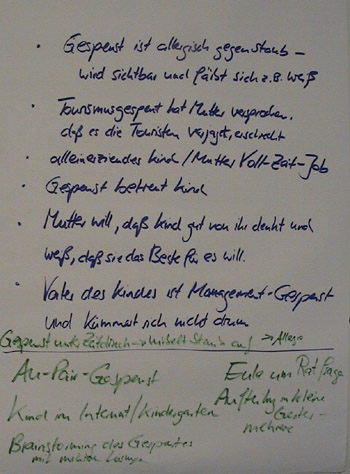 • Gespenst ist allergisch gegen Staub –
wird sichtbar und färbt sich z.B. weiß
• Tourismusgespenst hat Mutter versprochen,
daß es die Touristen verjagt, erschreckt
• alleinerziehendes Kind / Mutter Vollzeit-Job
• Gespenst betreut Kind
• Mutter will, daß Kind gut von ihr denkt und
weiß, daß sie das Beste für es will.
• Vater des Kindes ist Management-Gespenst
und kümmert sich nicht drum
Gespenst unter Zeitdruck → wirbelt Staub auf → Allergie
Au-Pair-Gespenst
Eule um Rat fragen
Kind im Internat/Kindergarten
Aufteilung in kleine
Geister-
Brainstorming des Gespenstes
mit